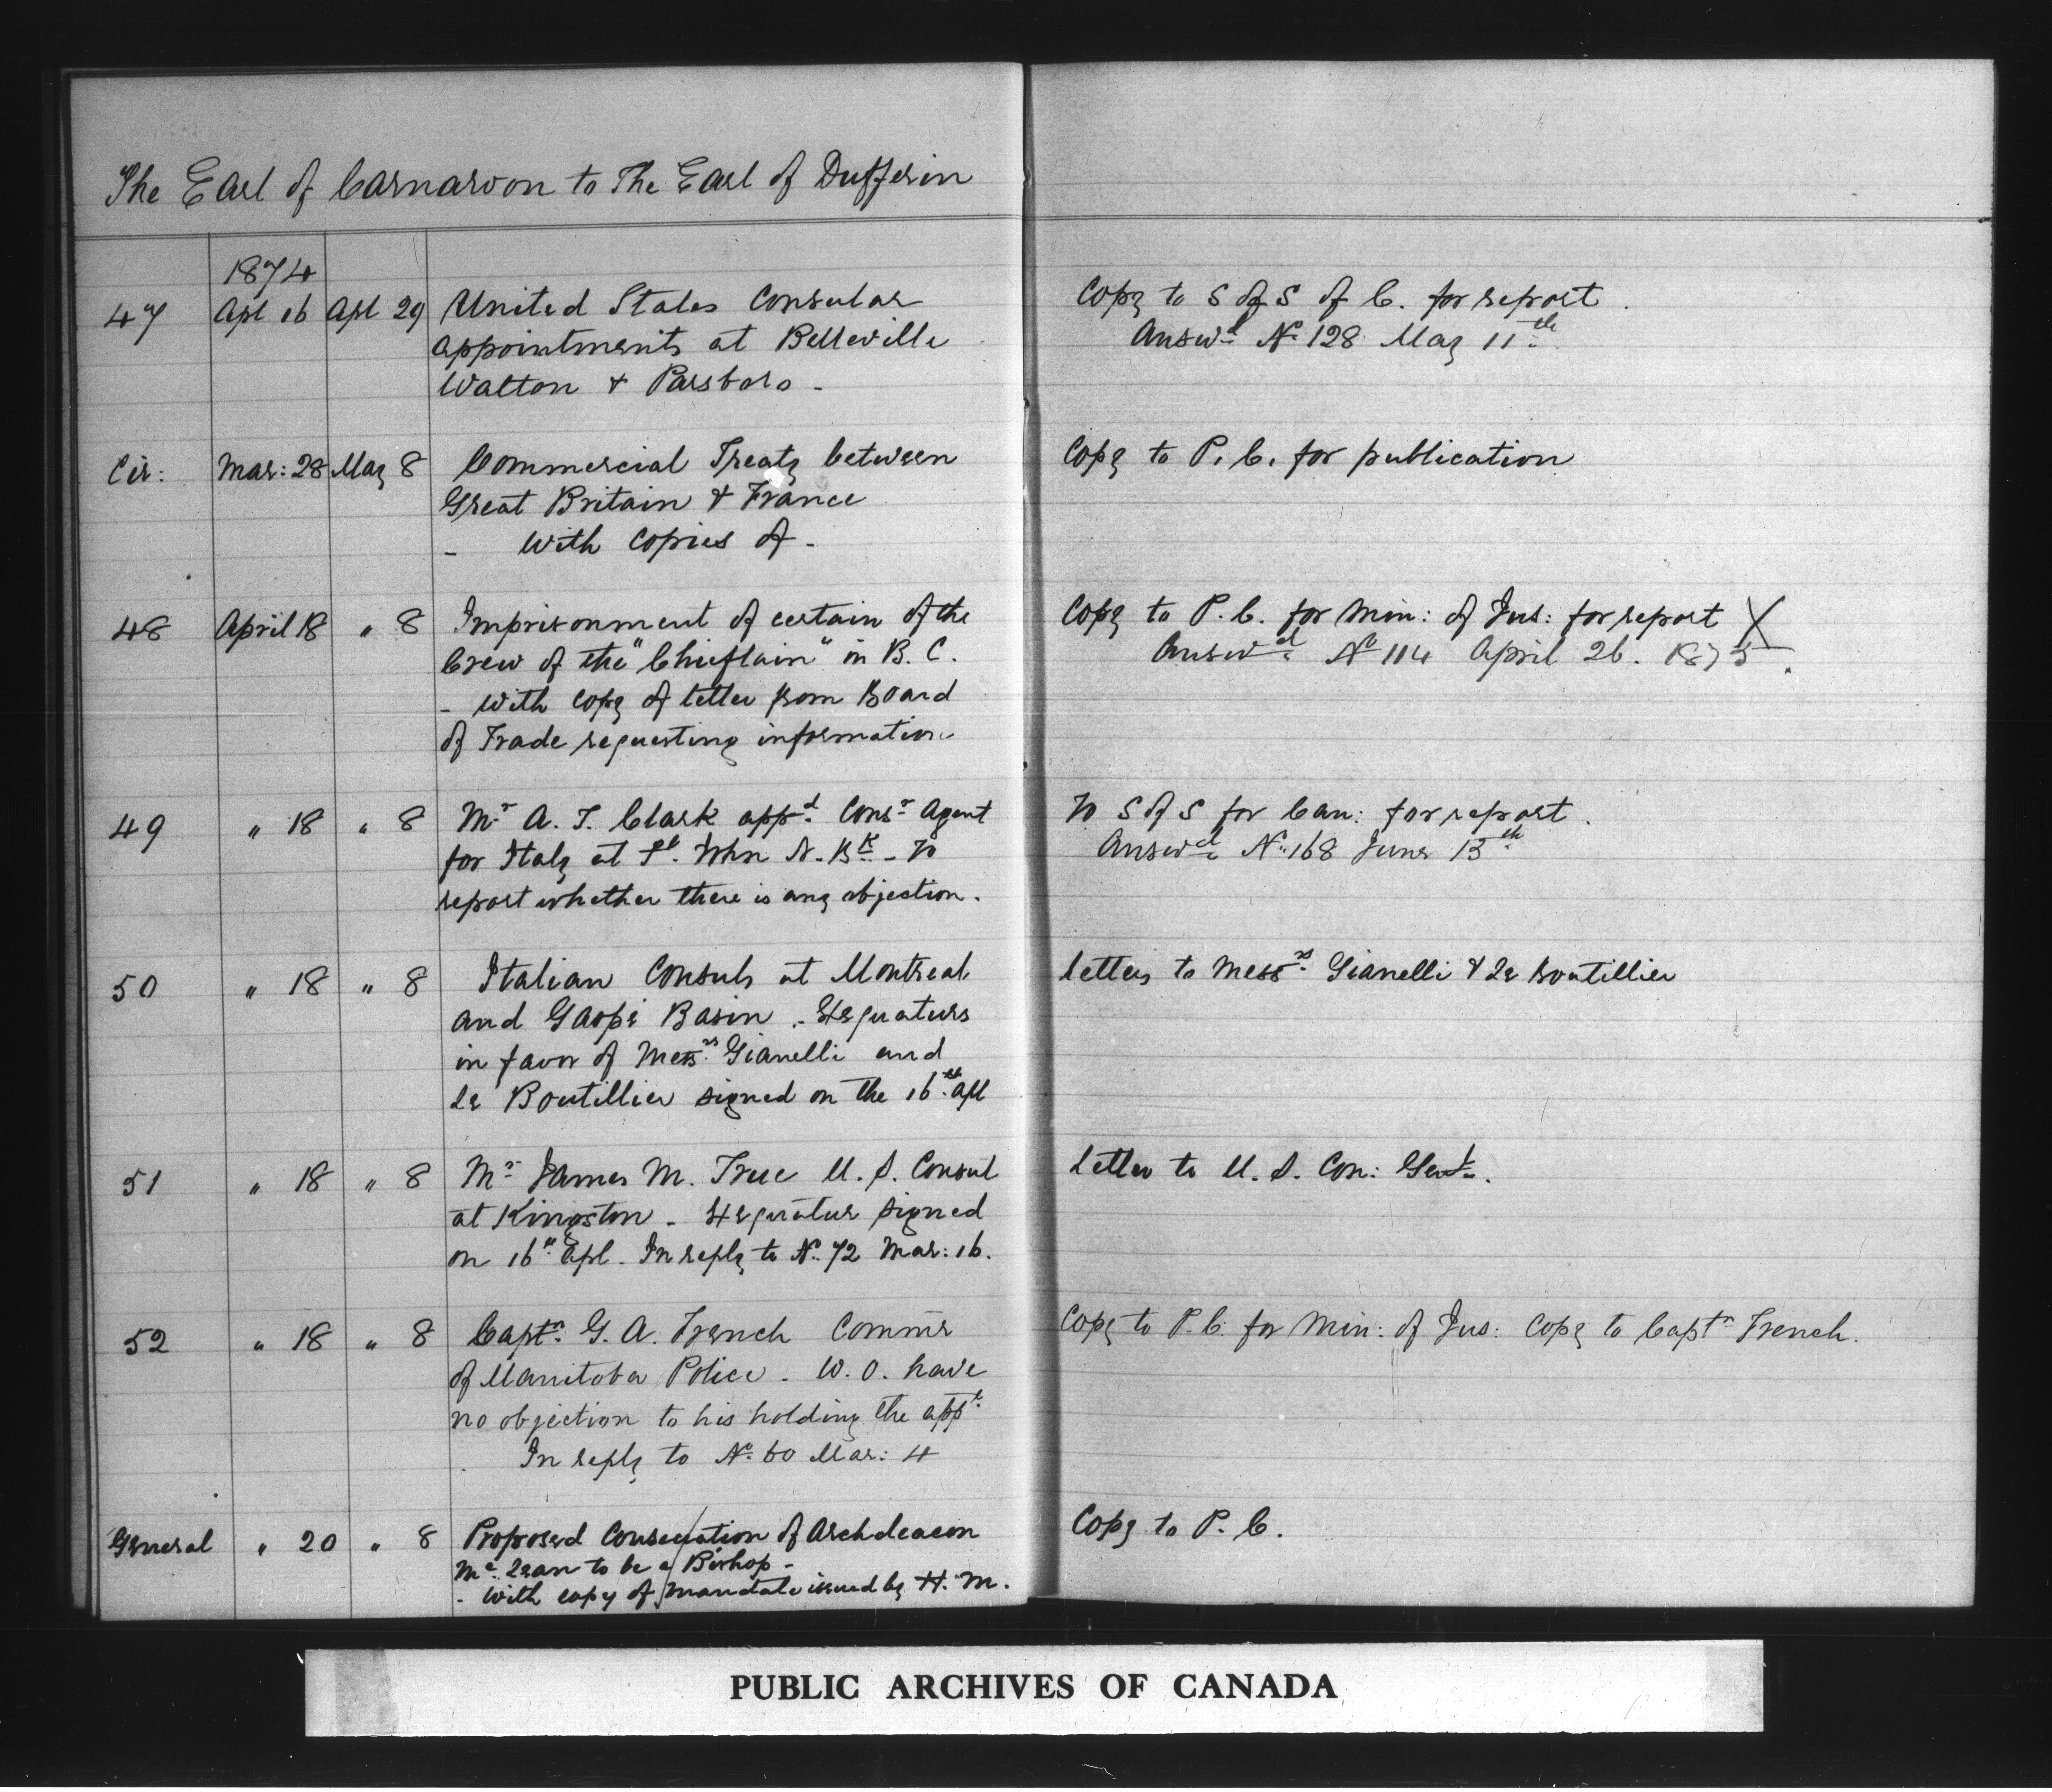 The Earl of Carnarvon to The Earl of Dufferin
1874
47 Apl 16 Apl 29 United States Consular
appointments at Belleville
Walton & Parsboro -
Copy to S of S of C. for report.
Answd No 128 May 11th
Cir: Mar: 28 May 8 Commercial Treaty between
Great Britain & France
- With Copies of -
Copy to P. C. for publication
48 April 18 " 8 Imprisonment of certain of the
Crew of the "Chieftain" in B. C.
- With Copy of letter from Board
of Trade requesting information
Copy to P. C. for Min: of Jus: for report X
Answd No 114 April 26. 1875.
49 " 18 " 8 Mr A. T. Clark appd Consr Agent
for Italy at St. John N. BK - To
report whether there is any objection.
To S of S for Can: for report.
Answd No 168 June 13th
50 " 18 " 8 Italian Consuls at Montreal
and Gaspé Basin - Exequaturs
in favor of Messrs Gianelli and
Le Boutillier signed on the 16th Apl
Letters to Messrs Gianelli & Le Boutillier
51 " 18 " 8 Mr James M. True U. S. Consul
at Kingston - Exequatur signed
on 16th Apl. In reply to No 72 Mar: 16.
Letter to U. S. Con: Genl.
52 " 18 " 8 Captn G. A. French Commr
of Manitoba Police - W. O. have
no objection to his holding the appt
In reply to No 60 Mar: 4
Copy to P. C. for Min: of Jus: Copy to Captn French.
General " 20 " 8 Proposed Consecration of Archdeacon
Mc Lean to be a Bishop -
- With copy of Mandate issued by H. M.
Copy to P. C.
PUBLIC ARCHIVES OF CANADA